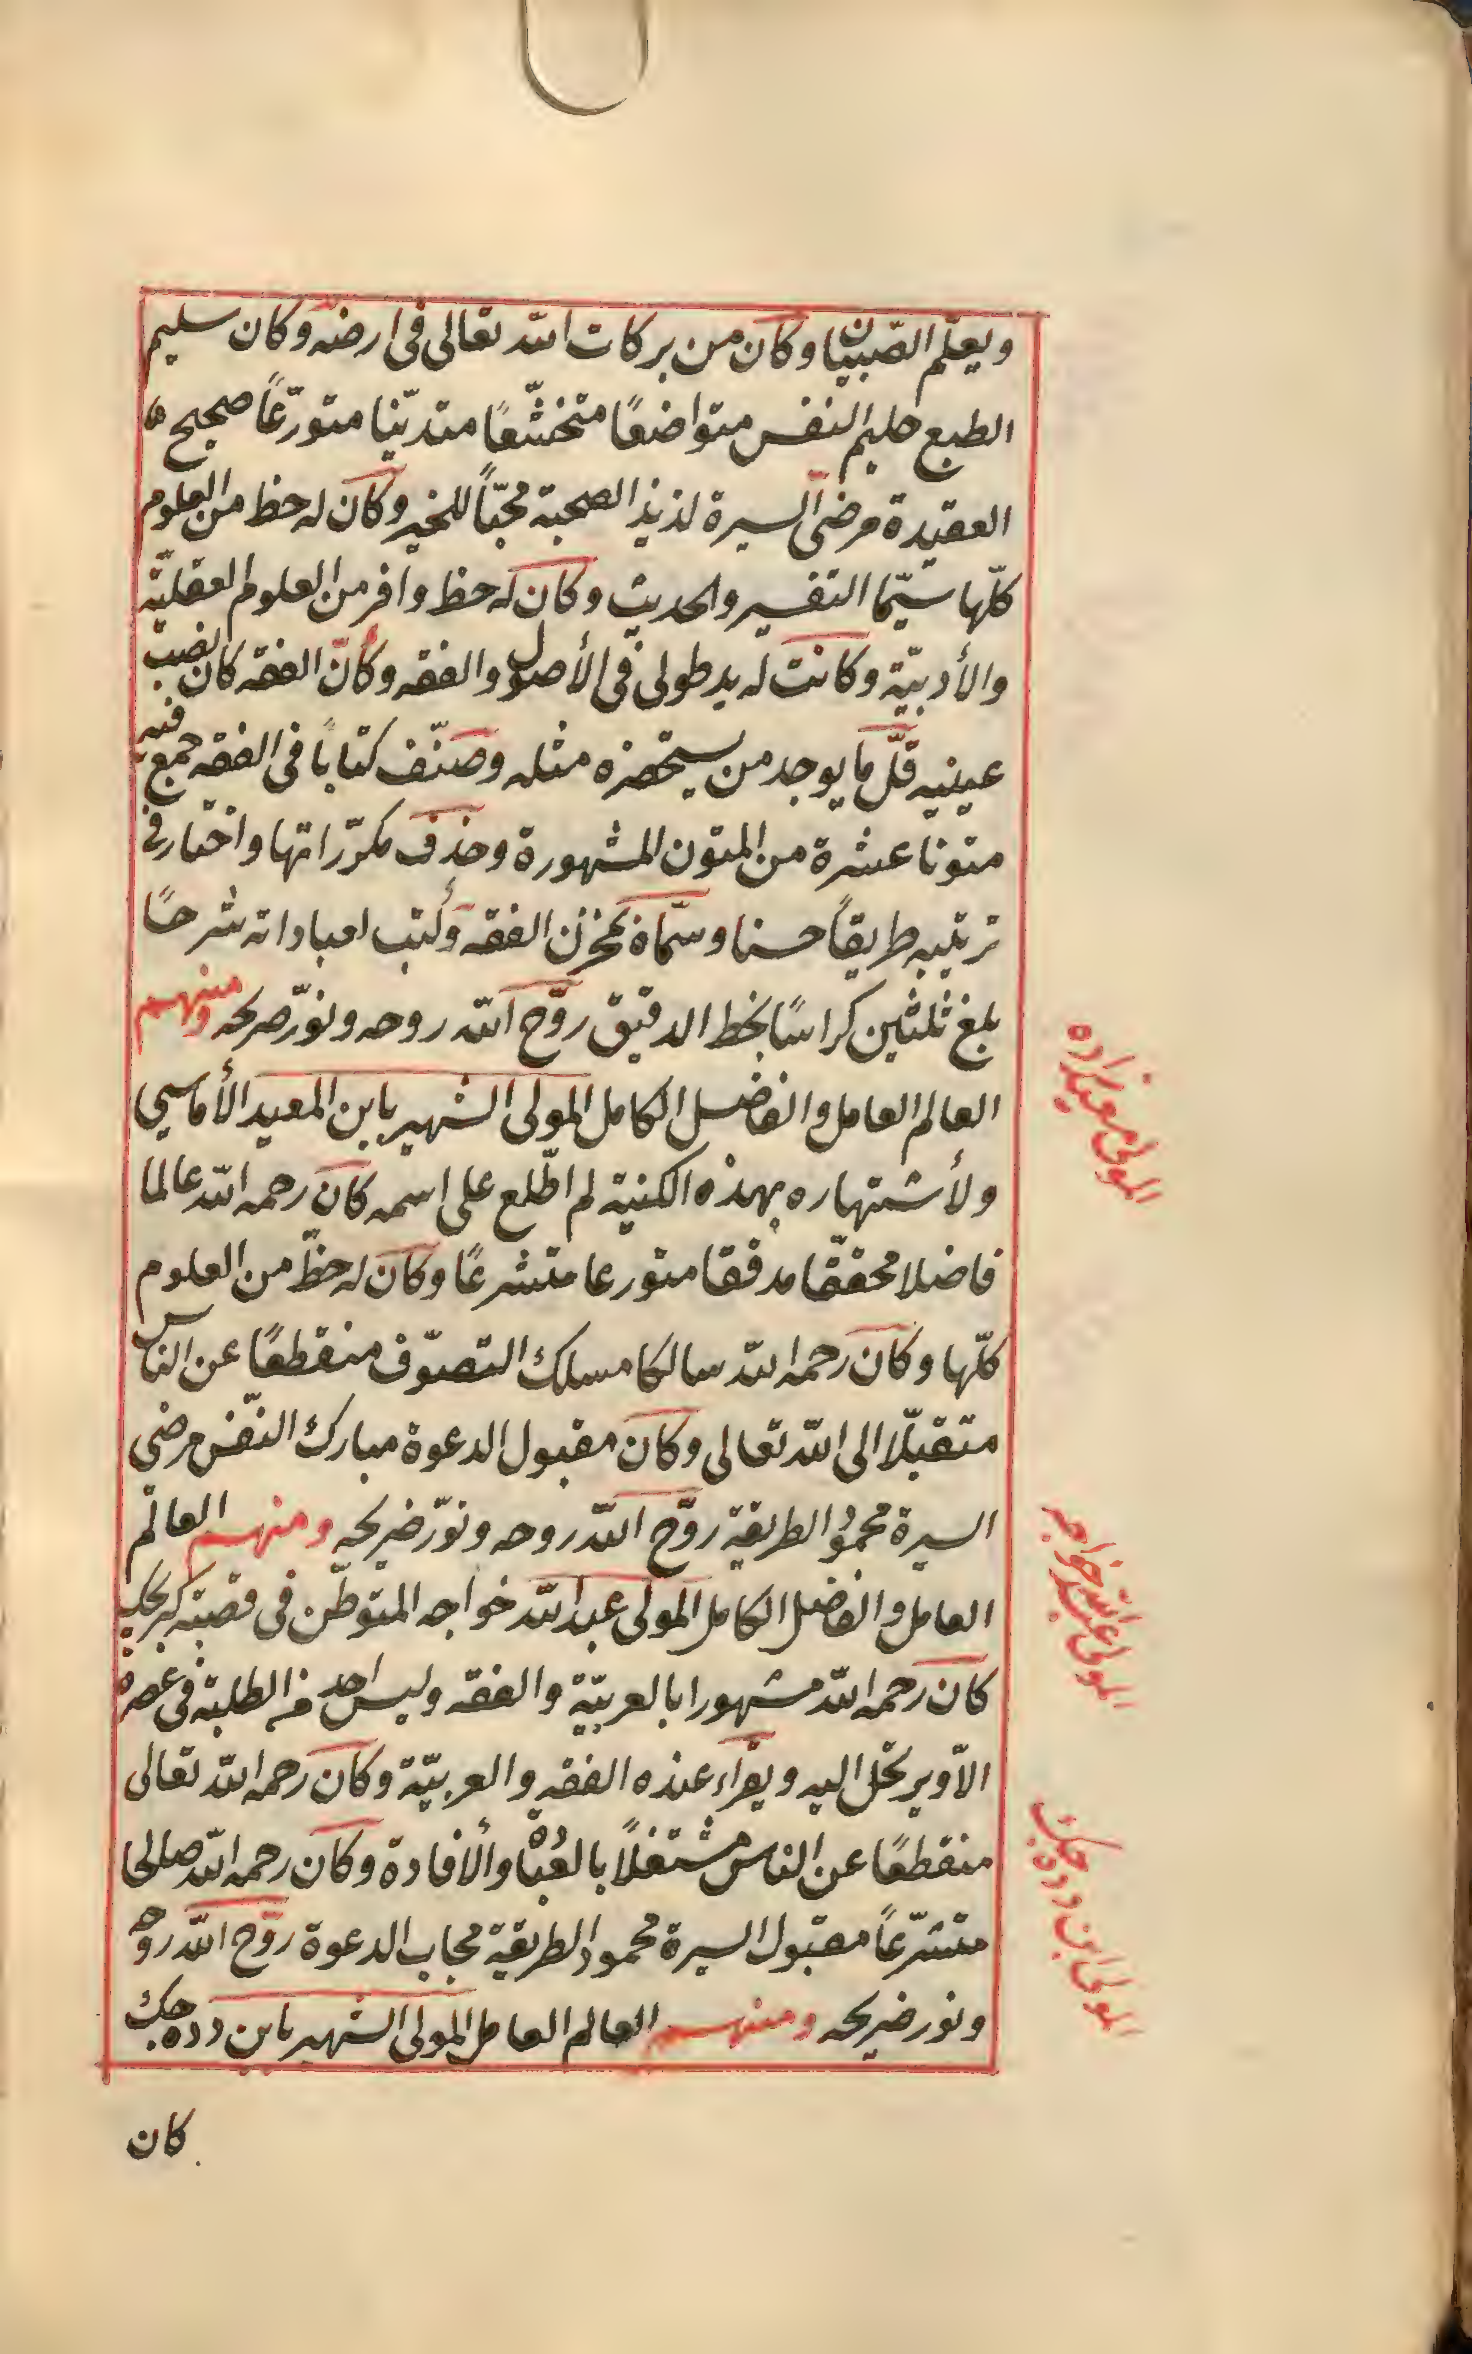 ويعلّم الصّبيان وكان من بركات الله تعالى فى ارضه وكان سليم
الطبع حليم النفس متواضعًا متخشّعًا متديّنا متورّعًا صحيح
العقيدة مرضى السيرة لذيذ الصحبة محبّاً للخير وكان له حظ من العلوم
كلّها سيّما التفسير والحديث وكان له حظ وافر من العلوم العقليّة
والأدبيّة وكانت له يد طولى فى الأصول والفقه وكانّ الفقه كان نصب
عينيه قلّ ما يوجد من يستحضره مثله وصنّف كتابًا فى الفقه جمع فيه
متونا عشرة من المتون المشهورة وحذف مكرّراتها واختار فى
ترتيبه طريقاً حسنا وسمّاه بمخزن الفقه وكتب لعباداته شرحًا
بلغ ثلثين كراسًا بخط الدقيق روّح الله روحه ونوّر ضريحه ومنهم
العالم العامل والفاضل الكامل المولى الشهير بابن المعيد الأماسي
ولأشتهاره بهذه الكنية لم اطّلع على اسمه كان رحمه الله عالما
فاضلا محقّقا مدققا متورعا متشرعًا وكان له حظّ من العلوم
كلّها وكان رحمه الله سالكا مسلك التصوّف منقطعًا عن الناس
متقبّلا الى الله تعالى وكان مقبول الدعوة مبارك النّفس مرضى
السيرة محمود الطريقة روّح الله روحه ونوّر ضريحه ومنهم العالم
العامل والفاضل الكامل المولى عبد الله خواجه المتوطّن فى قصبة
كان رحمه الله مشهورا بالعربيّة والفقه وليس احد من الطلبة فى عصره
الاّ ويرتحل اليه ويقراء عنده الفقه والعربيّة وكان رحمه الله تعالى
منقطعًا عن الناس مشتغلاً بالعبادة والأفادة وكان رحمه الله صالحا
متشرّعاً مقبول السيرة محمود الطريقة مجاب الدعوة روّح الله روحه
ونور ضريحه ومنهم العالم العامل المولى الشهير بابن دده جك
كان
المولى معيدزاده
المولى عبد الله خواجه
المولى ابن دده جك